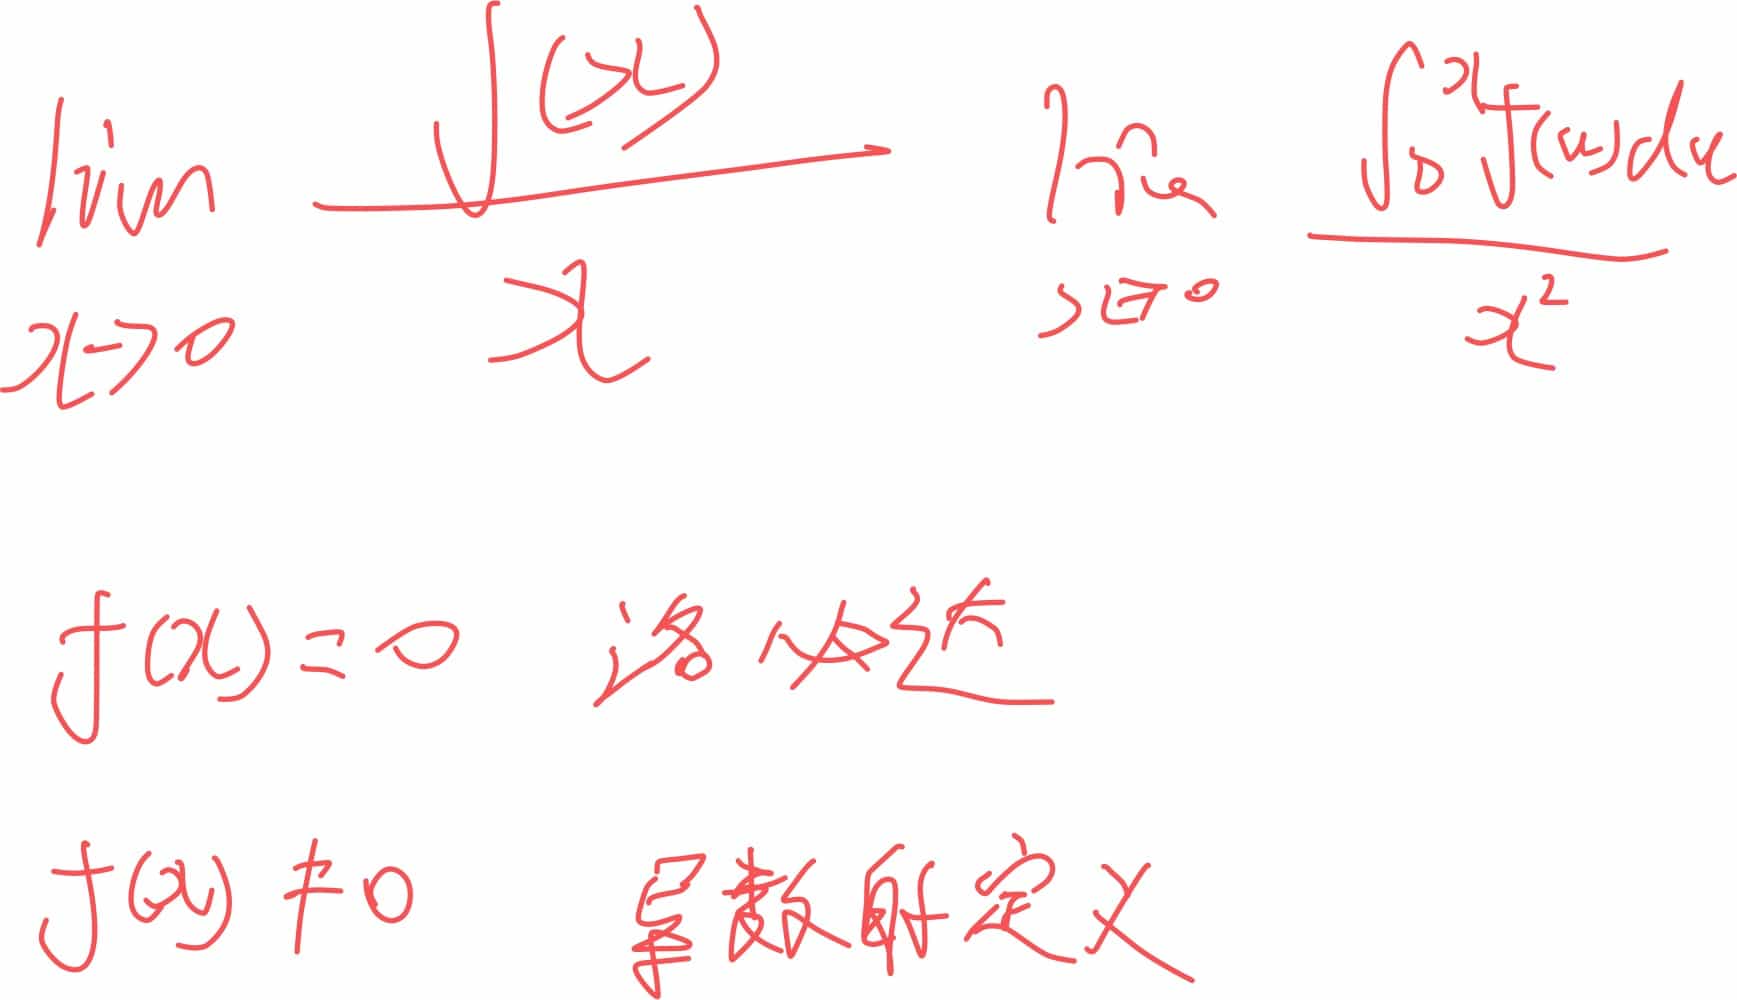 lim x→0 f(x)/x lim x→0 ∫₀ˣ f(u)du/x²
f(x)=0 洛必达
f(x)≠0 导数的定义